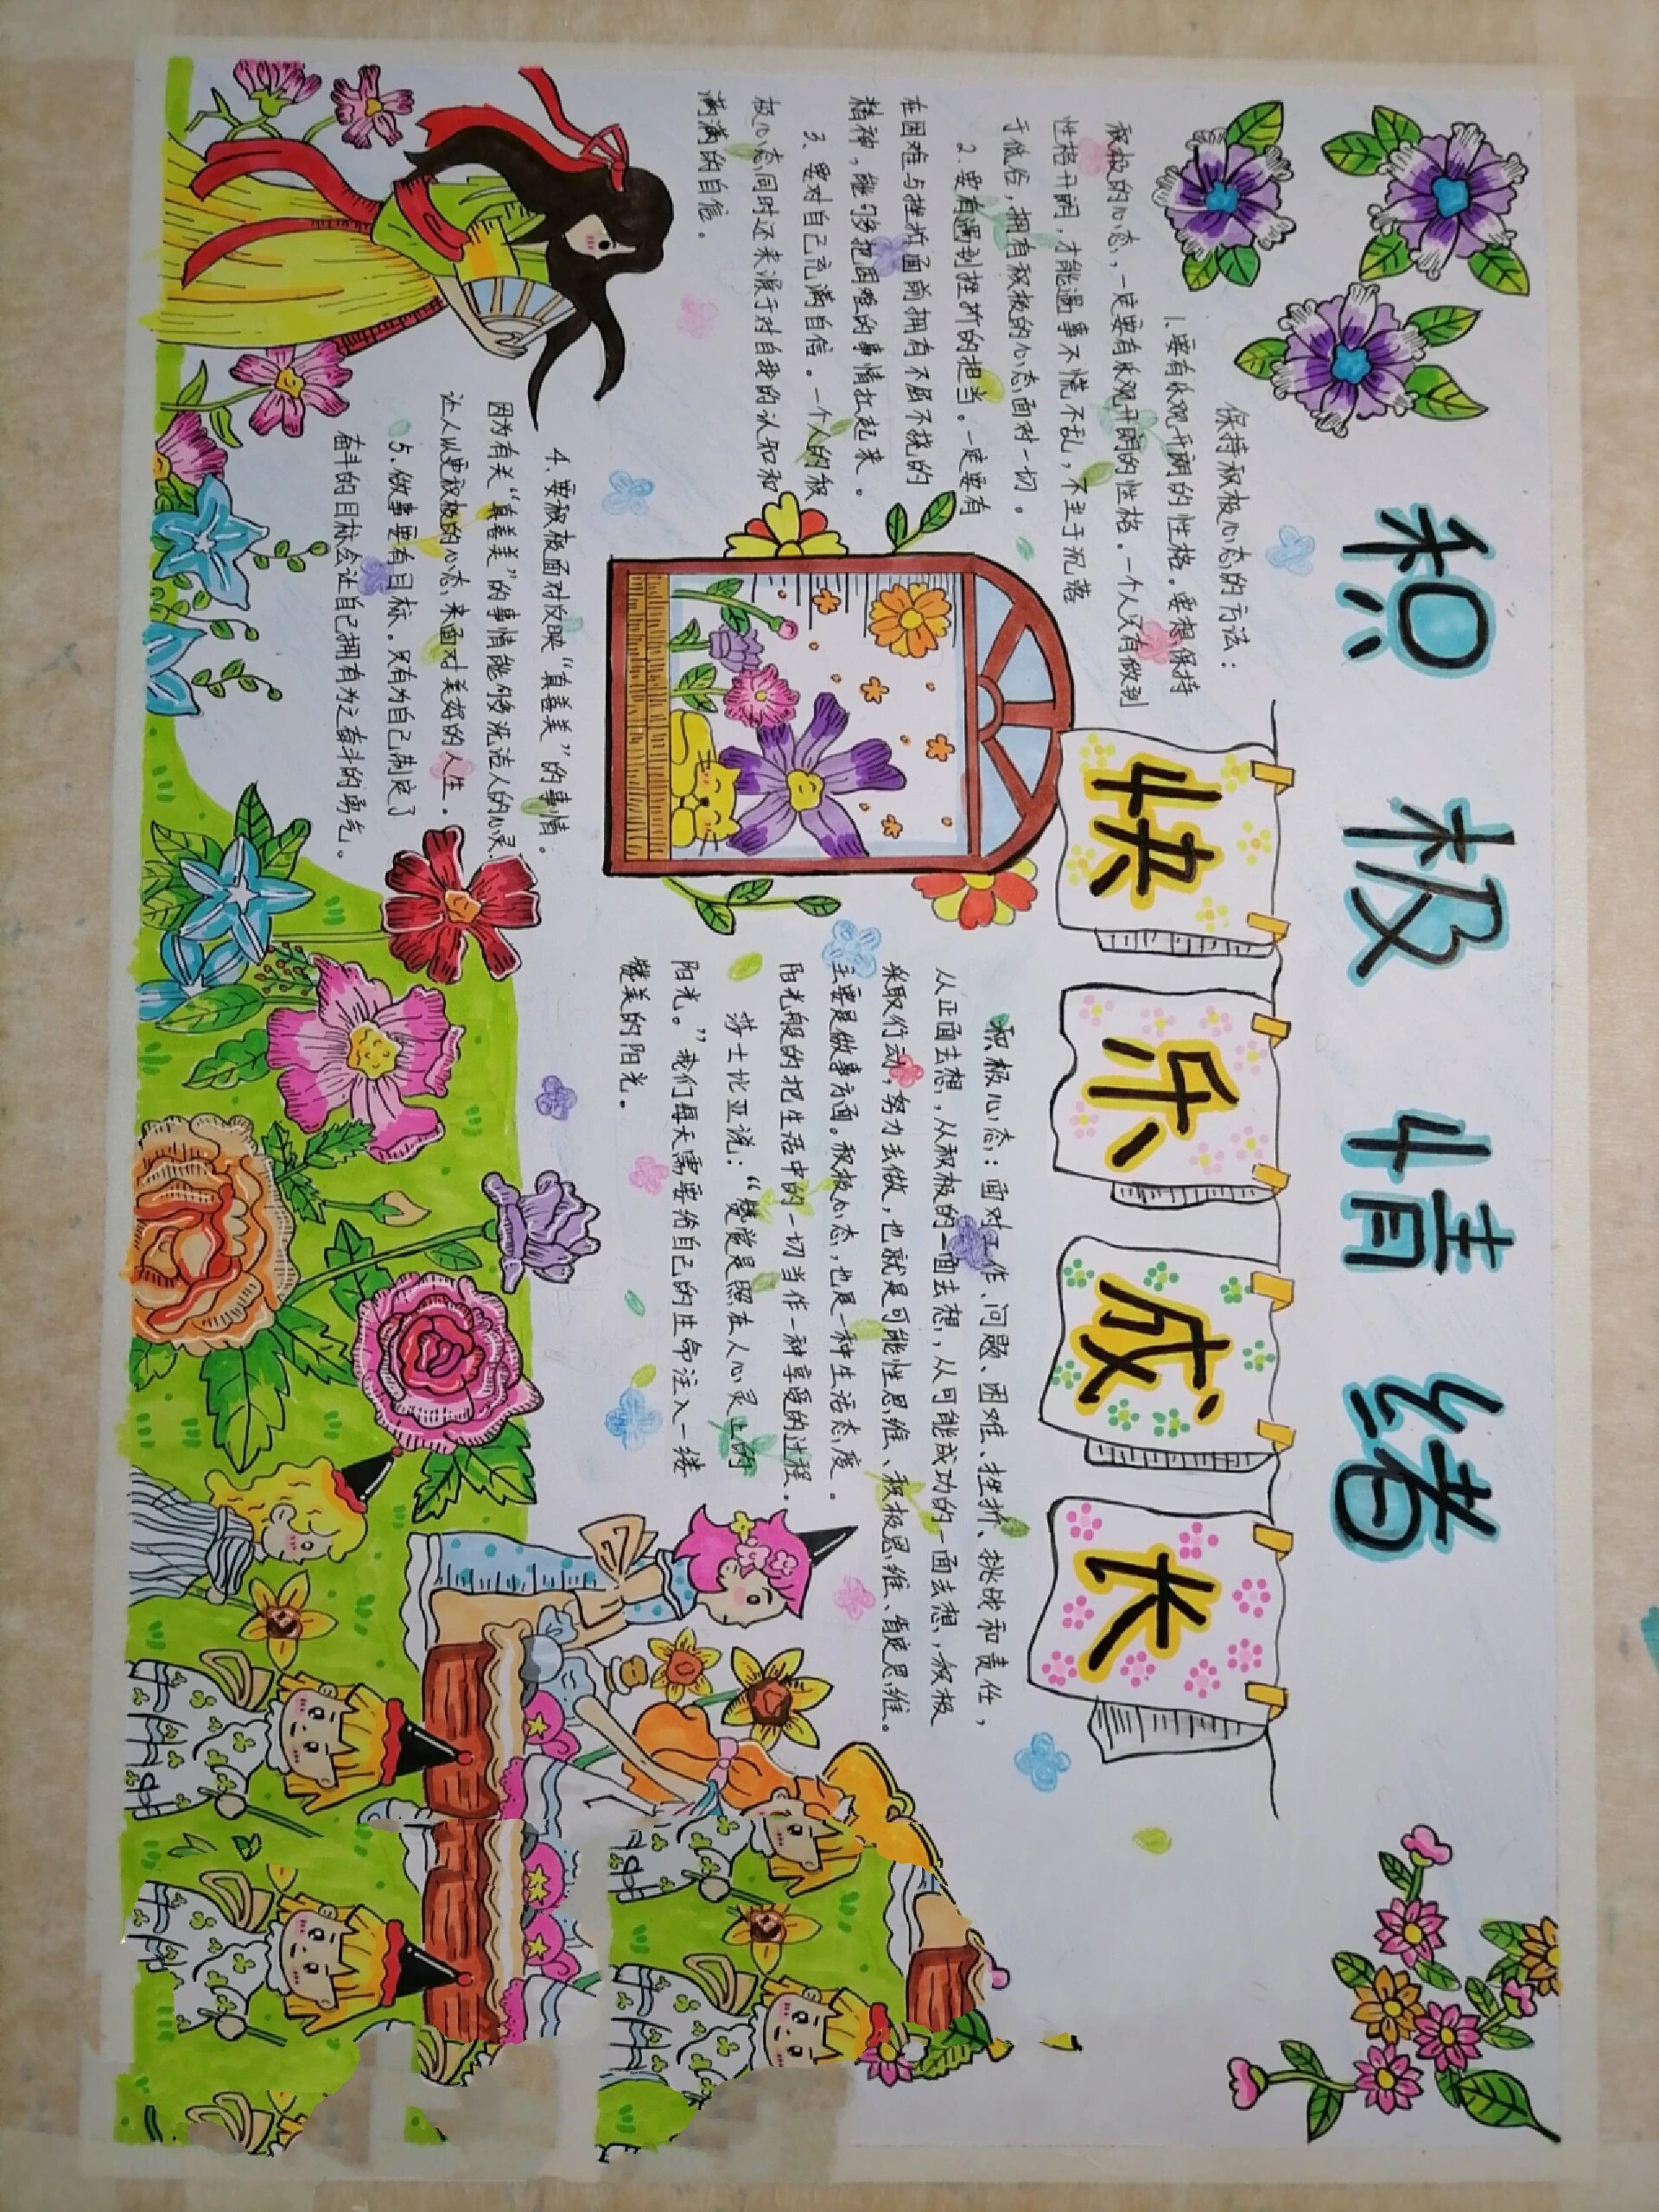 积极情绪
快乐成长
保持积极心态的方法：
1、要有乐观开朗的性格。要想保持
积极的心态，一定要有乐观开朗的性格。一个人只有做到
性格开朗，才能遇事不慌不乱，不至于沉落
于低俗，拥有积极的心态面对一切。
2、要有遇到挫折的担当。一定要有
在困难与挫折面前拥有不屈不挠的
精神，能够把困难的事情扛起来。
3、要对自己充满自信。一个人的积
极心态同时还来源于对自我的认知和
满满的自信。
4、要积极面对反映“真善美”的事情。
因为有关“真善美”的事情能够洗洁人的心灵，
让人以更积极的心态来面对美好的人生。
5、做事要有目标。只有为自己制定了
奋斗的目标会让自己拥有为之奋斗的勇气。
积极心态：面对工作、问题、困难、挫折、挑战和责任，
从正面去想，从积极的一面去想，从可能成功的一面去想，积极
采取行动，努力去做，也就是可能性思维、积极思维、肯定思维。
主要是做事方面。积极心态，也是一种生活态度。
阳光般的把生活中的一切当作一种享受的过程。
莎士比亚说：“赞赏是照在人心灵上的
阳光。”我们每天需要给自己的生命注入一缕
赞美的阳光。